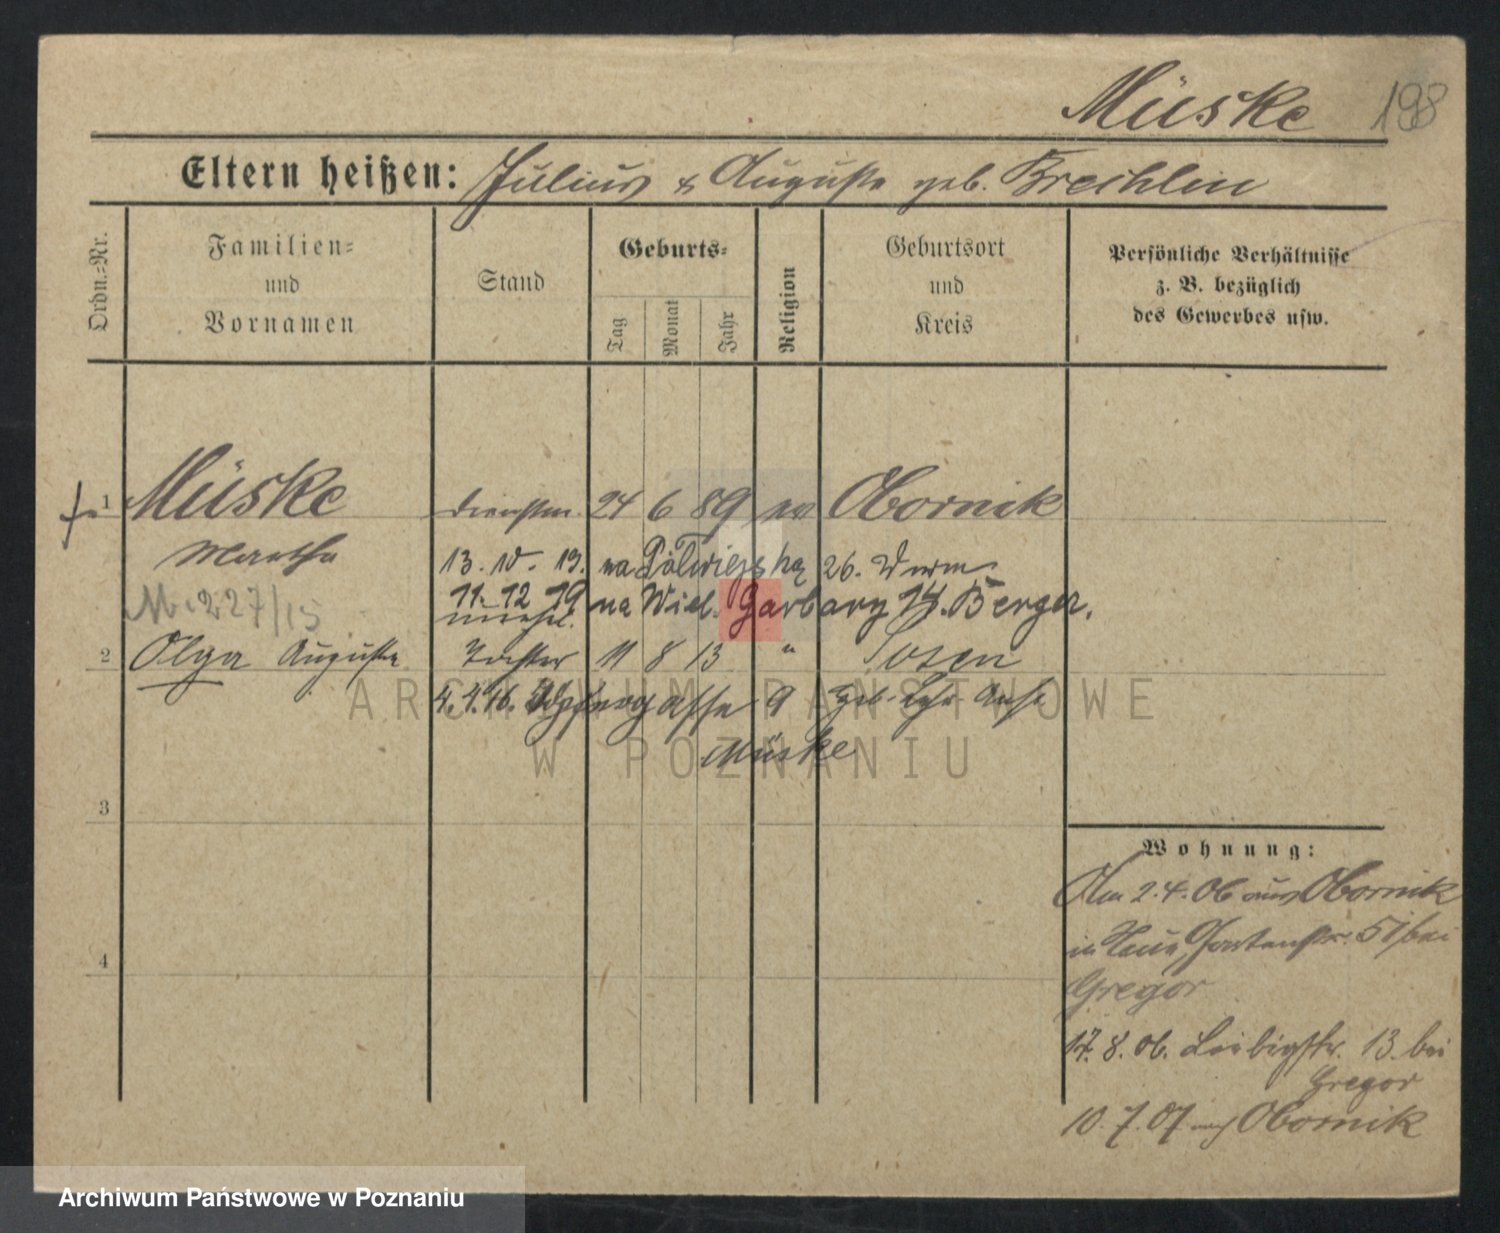 Müske 198
Eltern heißen: Julius & Auguste geb. Brechlin
Ordn.-Nr.
Familien-
und
Vornamen
Stand
Geburts-
Tag
Monat
Jahr
Religion
Geburtsort
und
Kreis
Persönliche Verhältnisse
z. B. bezüglich
des Gewerbes usw.
1 Müske Dienstm. 24 6 89 ev Obornik
Martha 13. 10. 19. na Półwiejską 26.
11. 12 19 na Wiel. Garbary 14. Berger.
M. 227/15 unehel.
2 Olga Auguste Tochter 11 8 13 " Posen
4. 4. 16. 9
Müske
3
4
Wohnung:
Am 2. 4. 06 aus Obornik
in Neue Gartenstr. 57 bei
Gregor
17. 8. 06. Liebigstr. 13. bei
Gregor
10. 7. 07 nach Obornik
ARCHIWUM PAŃSTWOWE
W POZNANIU
Archiwum Państwowe w Poznaniu